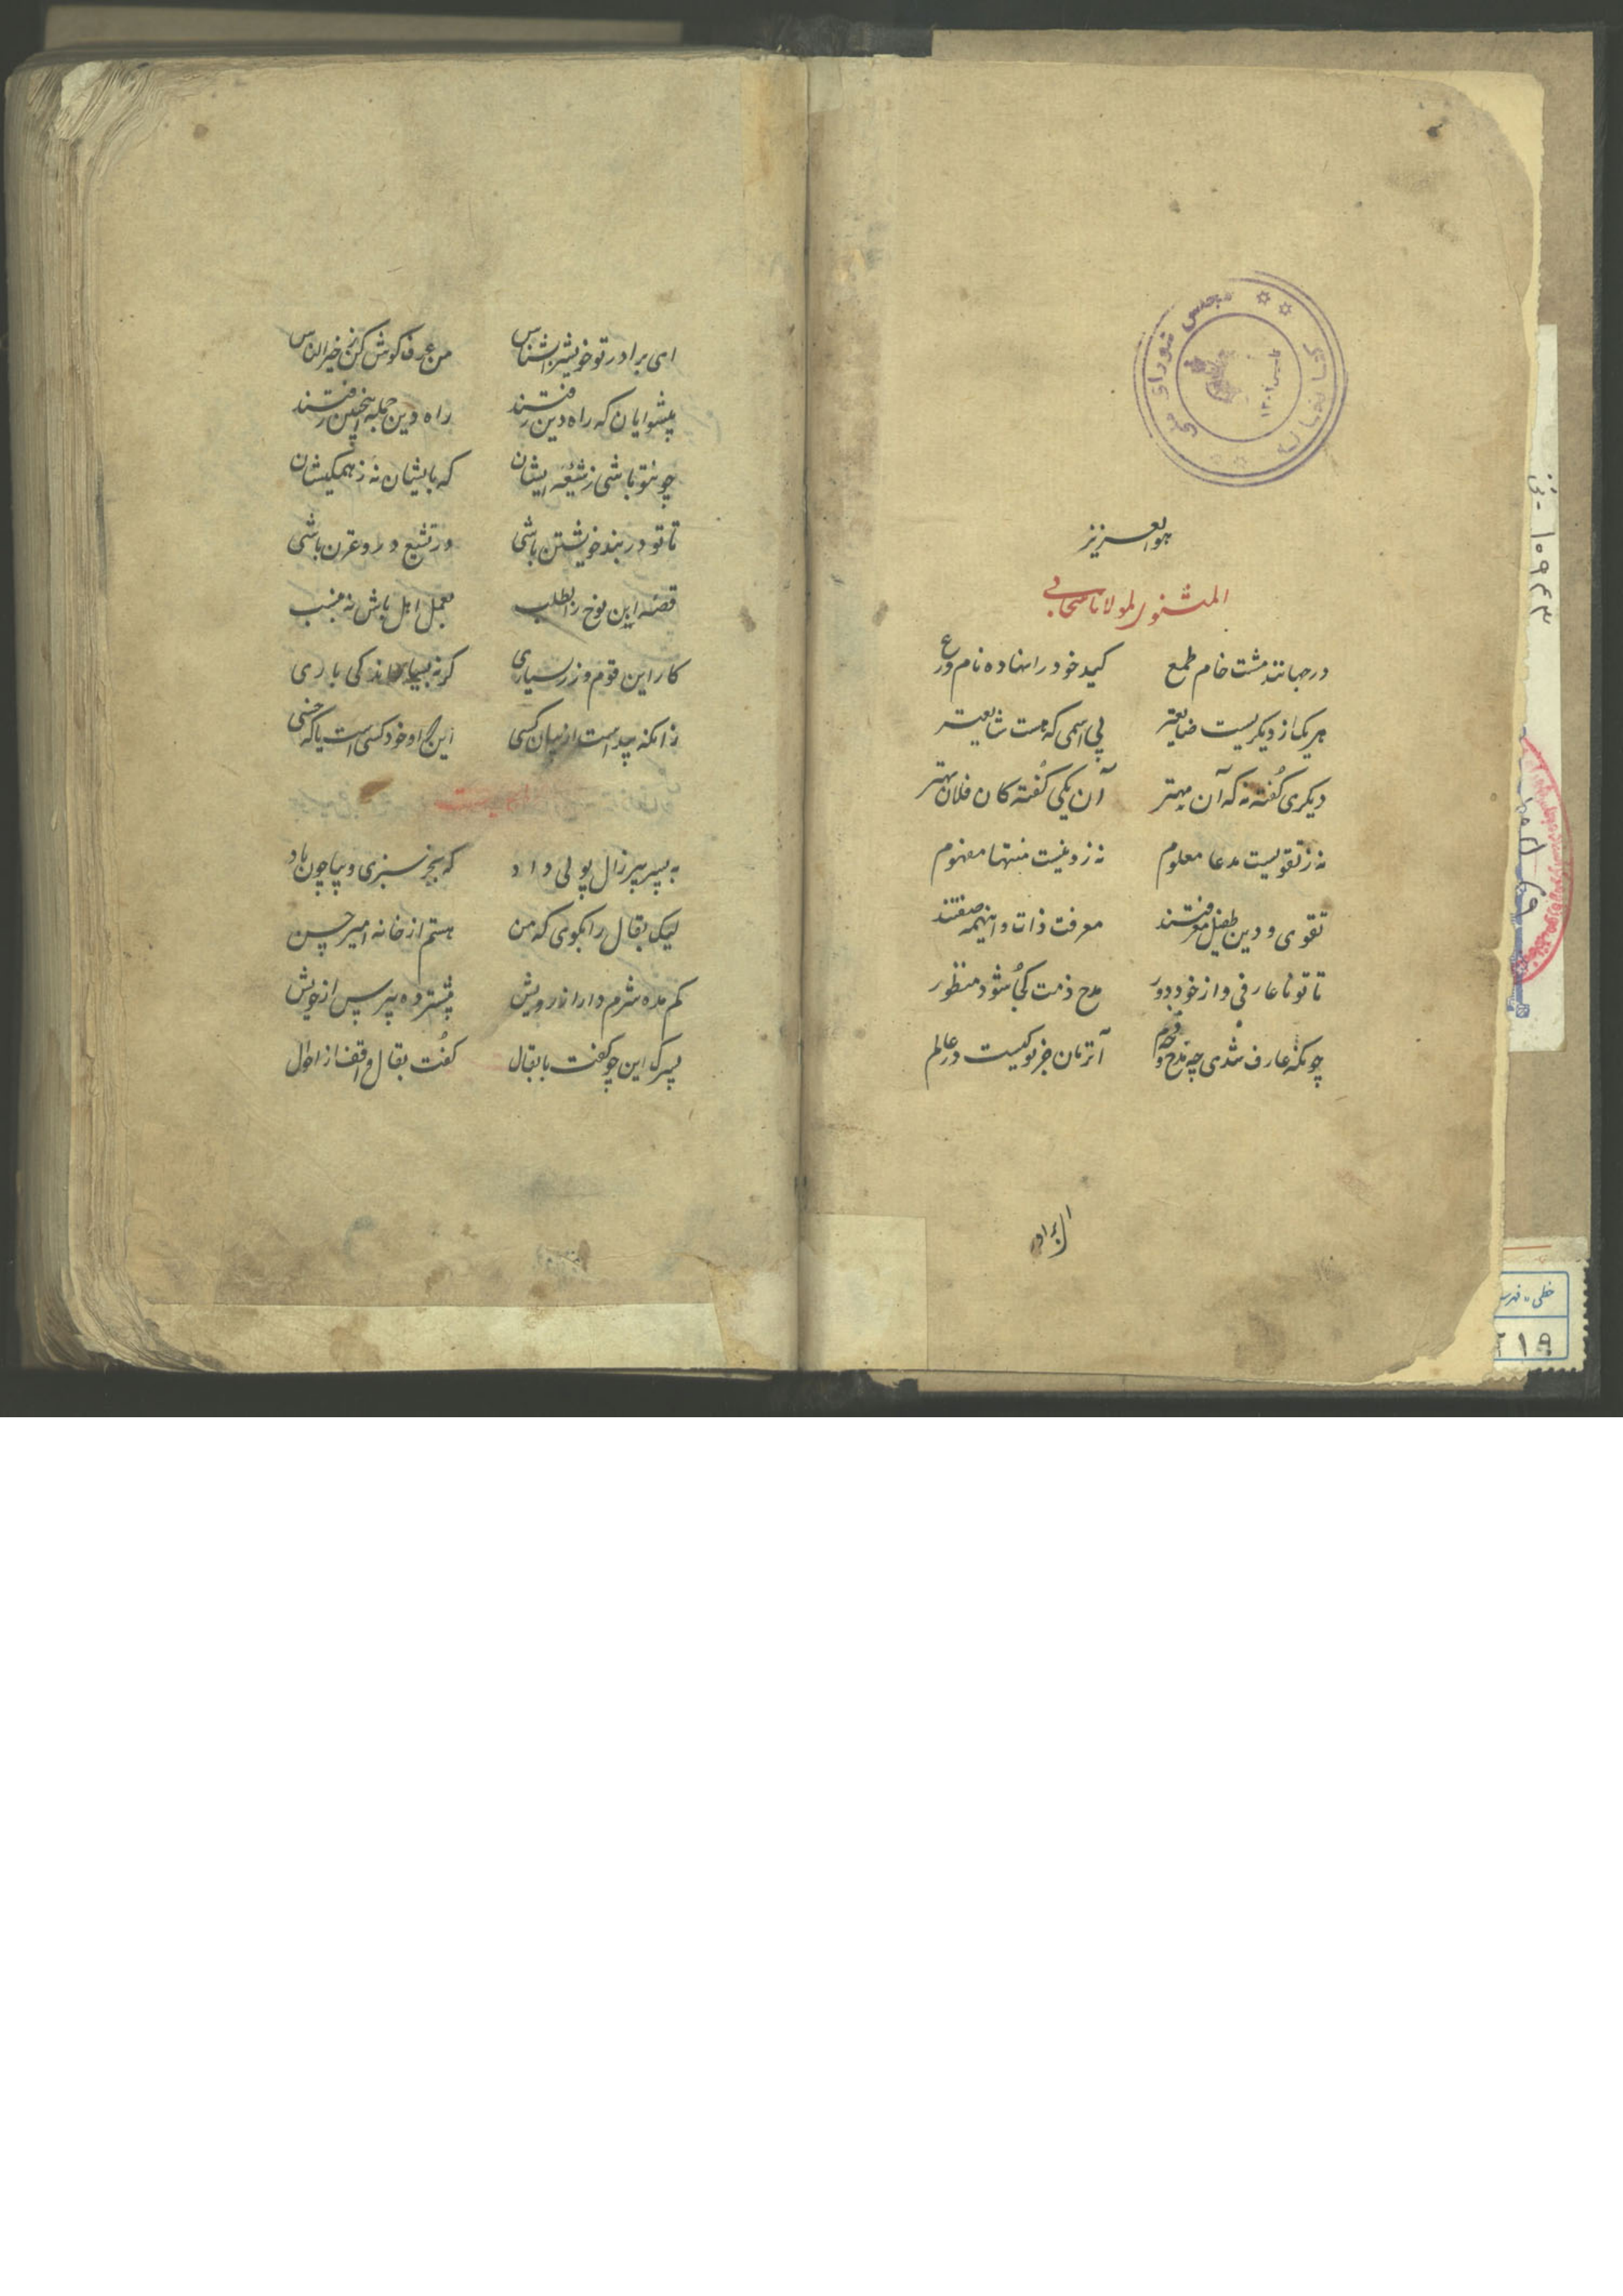 کتابخانه مجلس شورای ملی
هو العزیز
المثنوی لمولانا سحابی
در جهانند مشت خام طمع کید خود را نهاده نام ورع
هر یک از دیگریست ضایعتر پی اسمی که هست شایعتر
دیگری گفته نه که آن بهتر آن یکی گفته کان فلان بهتر
نه ز تقویست مدعا معلوم نه ز دینست منتها مفهوم
تقوی و دین طفیل معرفتند معرفت ذات و اینهمه صفتند
تا تو ناعارفی و از خود دور مدح ذمت کجا شود منظور
چونکه عارف شدی چه مدح و چه ذم آنزمان جز تو کیست در عالم
ای برادر تو خویش را بشناس من عرف گوش کن ز خیرالناس
پیشوایان که راه دین رفتند راه دین جمله اینچنین رفتند
چون تو باشی ز شیعه ایشان که بایشان نه ز همکیشان
تا تو در بند خویشتن باشی در تشیع و
قصه ابن نوح را بطلب بعمل اهل باش نه بنسب
کار این قوم و زر سیاری گر نه
زانکه پیداست از میان کسی این که او خود کسی است یا که خسی
به پسر پیرزال پولی داد که بخر سبزی و بیا چون باد
لیک بقال را بگوی که من هستم از خانه امیر حسن
کم مده شرم دار از درویش بیشتر ده بترس از خویش
پسرک این چو گفت با بقال گفت بقال واقف از احوال
۱۰۹۴۳
خطی - فهرست
۲۱۹